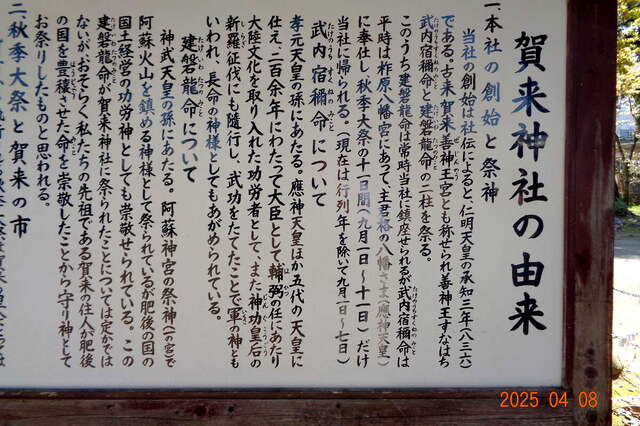 賀来神社の由来
一、本社の創始と祭神
当社の創始は社伝によると、仁明天皇の承知三年(八三六)
である。古来賀来善神王宮とも称せられ善神王すなはち
武内宿禰命と建磐龍命の二柱を祭る。
このうち建磐龍命は常時当社に鎮座せられるが武内宿禰命は
平時は柞原八幡宮にあって、主君格の八幡さま(應神天皇)
に奉仕し、秋季大祭の十一日間(九月一日〜十一日)だけ
当社に帰られる。(現在は行列年を除いて九月一日〜七日)
武内宿禰命について
孝元天皇の孫にあたる。應神天皇ほか五代の天皇に
仕え、二百余年にわたって大臣として輔弼の任にあたり
大陸文化を取り入れた功労者として、また神功皇后の
新羅征伐にも随行し、武功をたてたことで軍の神とも
いわれ、長命の神様としてもあがめられている。
建磐龍命について
神武天皇の孫にあたる。阿蘇神宮の祭神(一の宮)で
阿蘇火山を鎮める神様として祭られているが肥後の国の
国土経営の功労神としても崇敬せられている。この
建磐龍命が賀来神社に祭られたことについては定かでは
ないが、おそらく私たちの先祖である賀来の住人が肥後
の国を豊穣させた命を崇敬したことから守り神として
お祭りしたものと思われる。
二、秋季大祭と賀来の市
2025 04 08